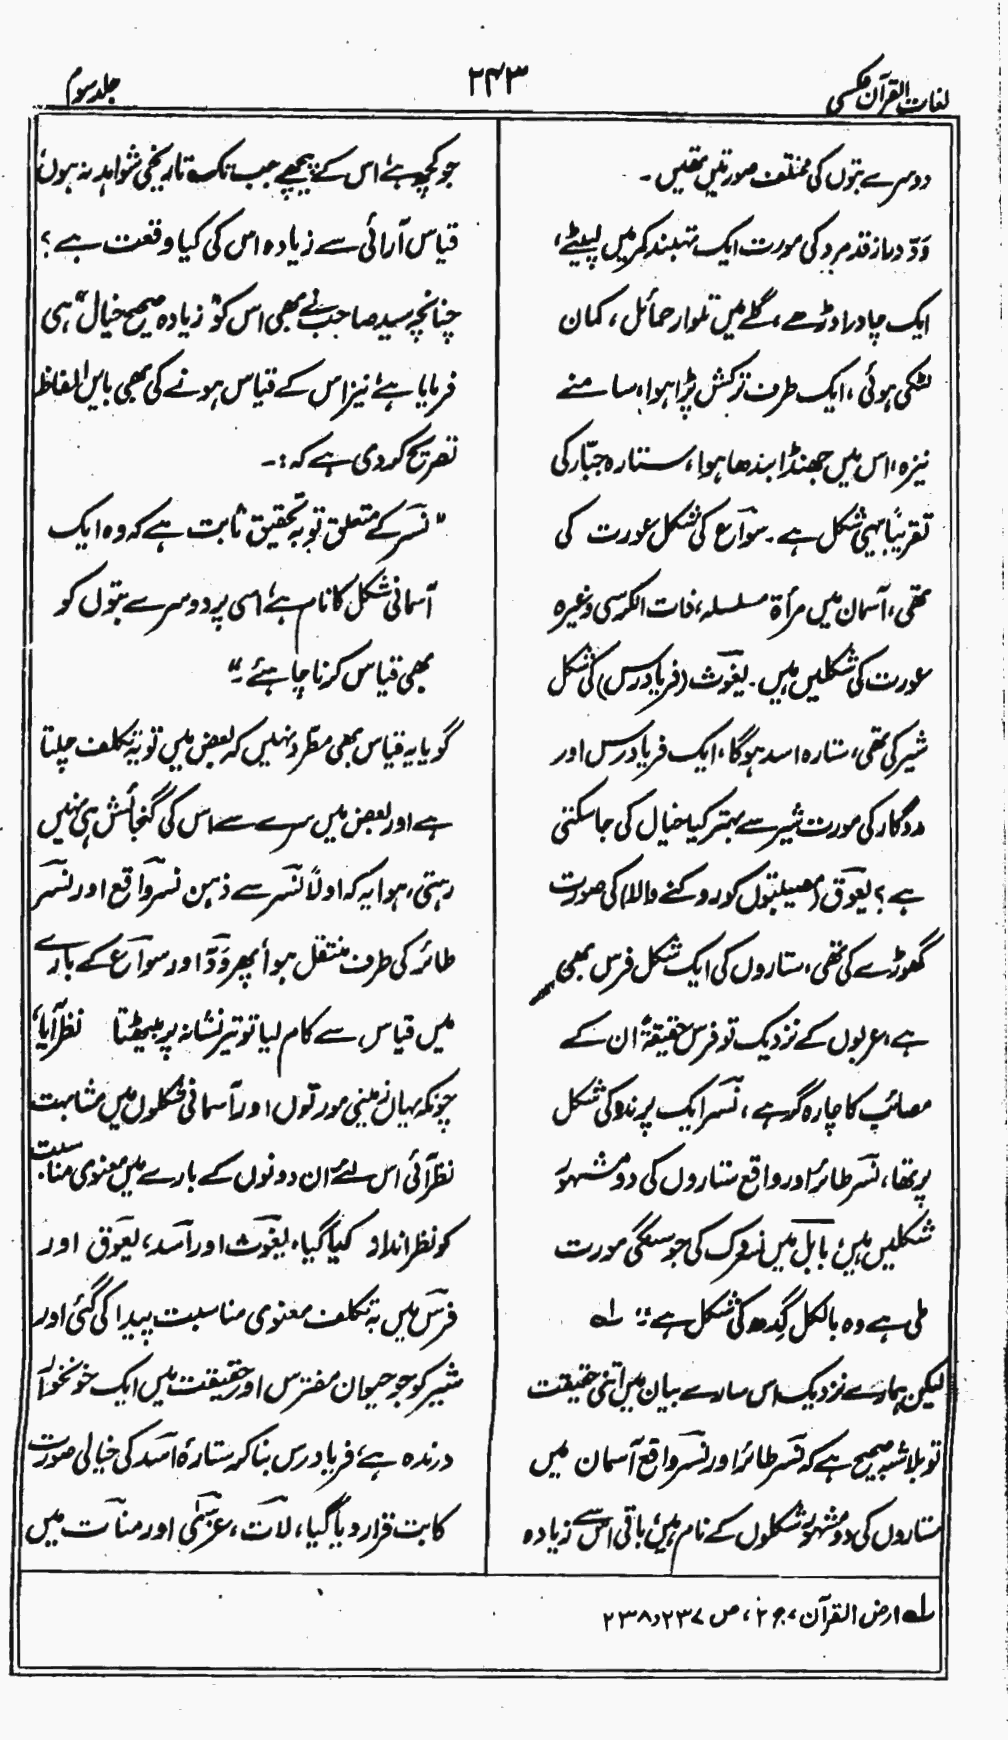 لغات القرآن عکسی
۲۴۳
جلد سوم
دوسرے بتوں کی مختلف صورتیں تھیں۔
وَدّ دراز قد مرد کی مورت ایک تہبند کمر میں لپیٹے،
ایک چادر اوڑھے، گلے میں تلوار حمائل، کمان
لٹکی ہوئی، ایک طرف ترکش پڑا ہوا، سامنے
نیزہ، اس میں جھنڈا بندھا ہوا، ستارہ جبّار کی
تقریباً یہی شکل ہے۔ سواع کی شکل عورت کی
تھی، آسمان میں مرأۃ مسلسلہ، ذات الکرسی وغیرہ
عورت کی شکلیں ہیں۔ یغوث (فریادرس) کی شکل
شیر کی تھی، ستارہ اسد ہوگا، ایک فریادرس اور
مددگار کی مورت شیر سے بہتر کیا خیال کی جاسکتی
ہے؟ یعوق (مصیبتوں کو روکنے والا) کی صورت
گھوڑے کی تھی، ستاروں کی ایک شکل فرس بھی
ہے، عربوں کے نزدیک تو فرس حقیقۃً ان کے
مصائب کا چارہ گر ہے، نسر ایک پرند کی شکل
پر تھا، نسر طائر اور واقع ستاروں کی دو مشہور
شکلیں ہیں، بابل میں نسروک کی جو سنگی مورت
ملی ہے وہ بالکل گدھ کی شکل ہے" لہ
لیکن ہمارے نزدیک اس سارے بیان میں اتنی حقیقت
تو بلاشبہ صحیح ہے کہ نسر طائر اور نسر واقع آسمان میں
ستاروں کی دو مشہور شکلوں کے نام ہیں، باقی اس سے زیادہ
جو کچھ ہے، اس کے پیچھے جب تک تاریخی شواہد نہ ہوں،
قیاس آرائی سے زیادہ اس کی کیا وقعت ہے؟
چنانچہ سید صاحب نے بھی اس کو "زیادہ صحیح خیال" ہی
فرمایا ہے، نیز اس کے قیاس ہونے کی بھی بایں الفاظ
تصریح کردی ہے کہ:۔
"نسر کے متعلق تو بہ تحقیق ثابت ہے کہ وہ ایک
آسمانی شکل کا نام ہے، اسی پر دوسرے بتوں کو
بھی قیاس کرنا چاہئے۔"
گویا یہ قیاس بھی مطّرد نہیں کہ بعض میں تو بہ تکلف چلتا
ہے اور بعض میں سرے سے اس کی گنجائش ہی نہیں
رہتی، ہوا یہ کہ اولاً نسر سے ذہن نسر واقع اور نسر
طائر کی طرف منتقل ہوا، پھر وَدّ اور سواع کے بارے
میں قیاس سے کام لیا تو تیر نشانہ پر بیٹھتا نظر آیا،
چونکہ یہاں زمینی مورتوں اور آسمانی شکلوں میں مشابہت
نظر آئی اس لئے ان دونوں کے بارے میں معنوی مناسبت
کو نظر انداز کیا گیا، یغوث اور اسد، یعوق اور
فرس میں بہ تکلف معنوی مناسبت پیدا کی گئی اور
شیر کو جو حیوان مفترس اور حقیقت میں ایک خونخوار
درندہ ہے، فریادرس بنا کر ستارۂ اسد کی خیالی صورت
کا بت قرار دیا گیا، لات، عزّیٰ اور منات میں
لہ ارض القرآن، ج ۲، ص ۲۳۷ و ۲۳۸